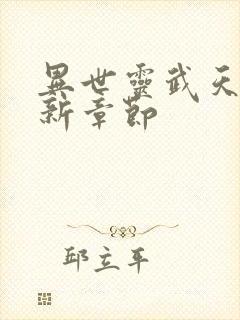 異世靈武天
新章節
邱立平